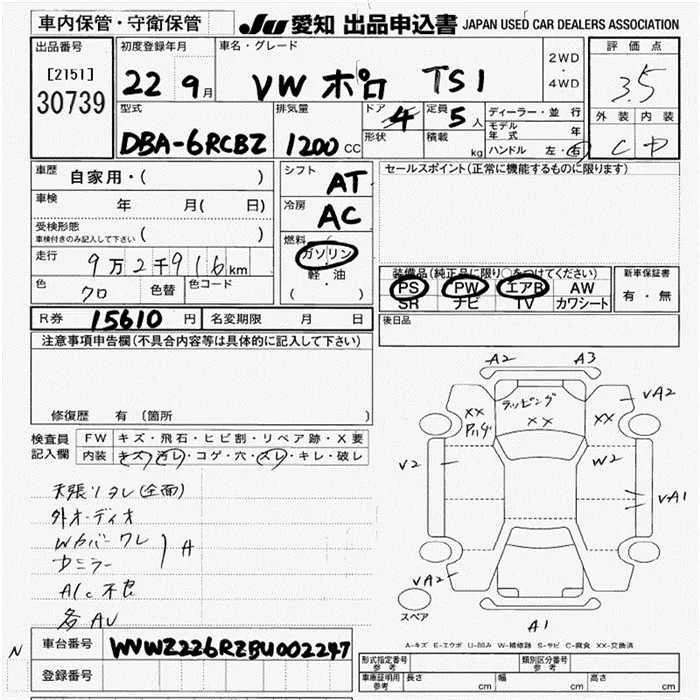 車内保管・守衛保管
JU 愛知 出品申込書 JAPAN USED CAR DEALERS ASSOCIATION
出品番号
[2151]
30739
初度登録年月
22 9月
車名・グレード
VW ポロ TSI
2WD
・
4WD
評価点
3.5
外装 内装
C
型式
DBA-6RCBZ
排気量
1200 CC
ドア 4
形状
定員 5人
積載 kg
ディーラー・並行
モデル年式 年
ハンドル 左・右
車歴 自家用・( )
車検 年 月( 日)
受検形態
車検付きのみ記入して下さい ( )
走行 9万2千916km
色 クロ 色替 色コード
シフト AT
冷房 AC
燃料
ガソリン
・
軽油
( )
セールスポイント(正常に機能するものに限ります)
装備品(純正品に限り○をつけてください)
PS PW エアB AW
SR ナビ TV カワシート
新車保証書
有・無
R券 15610 円 名変期限 月 日
後日品
注意事項申告欄(不具合内容等は具体的に記入して下さい)
修復歴 有(箇所 )
検査員記入欄
FW キズ・飛石・ヒビ割・リペア跡・X要
内装 キズ・汚レ・コゲ・穴・スレ・キレ・破レ
天張リヨレ(全面)
外オーディオ
Wカバーワレ
Dミラー
A
A/c不良
各AU
A2 A3
ラッピング
XX
XX
XX
VA2
V2
W2
VA1
VA2
A1
スペア
A-キズ E-エクボ U-凹み W-補修跡 S-サビ C-腐食 XX-交換済
N
車台番号 WVWZZZ6RZBU002247
登録番号
形式指定番号 参考
類別区分番号 参考
車庫証明用 参考 長さ cm 幅 cm 高さ cm